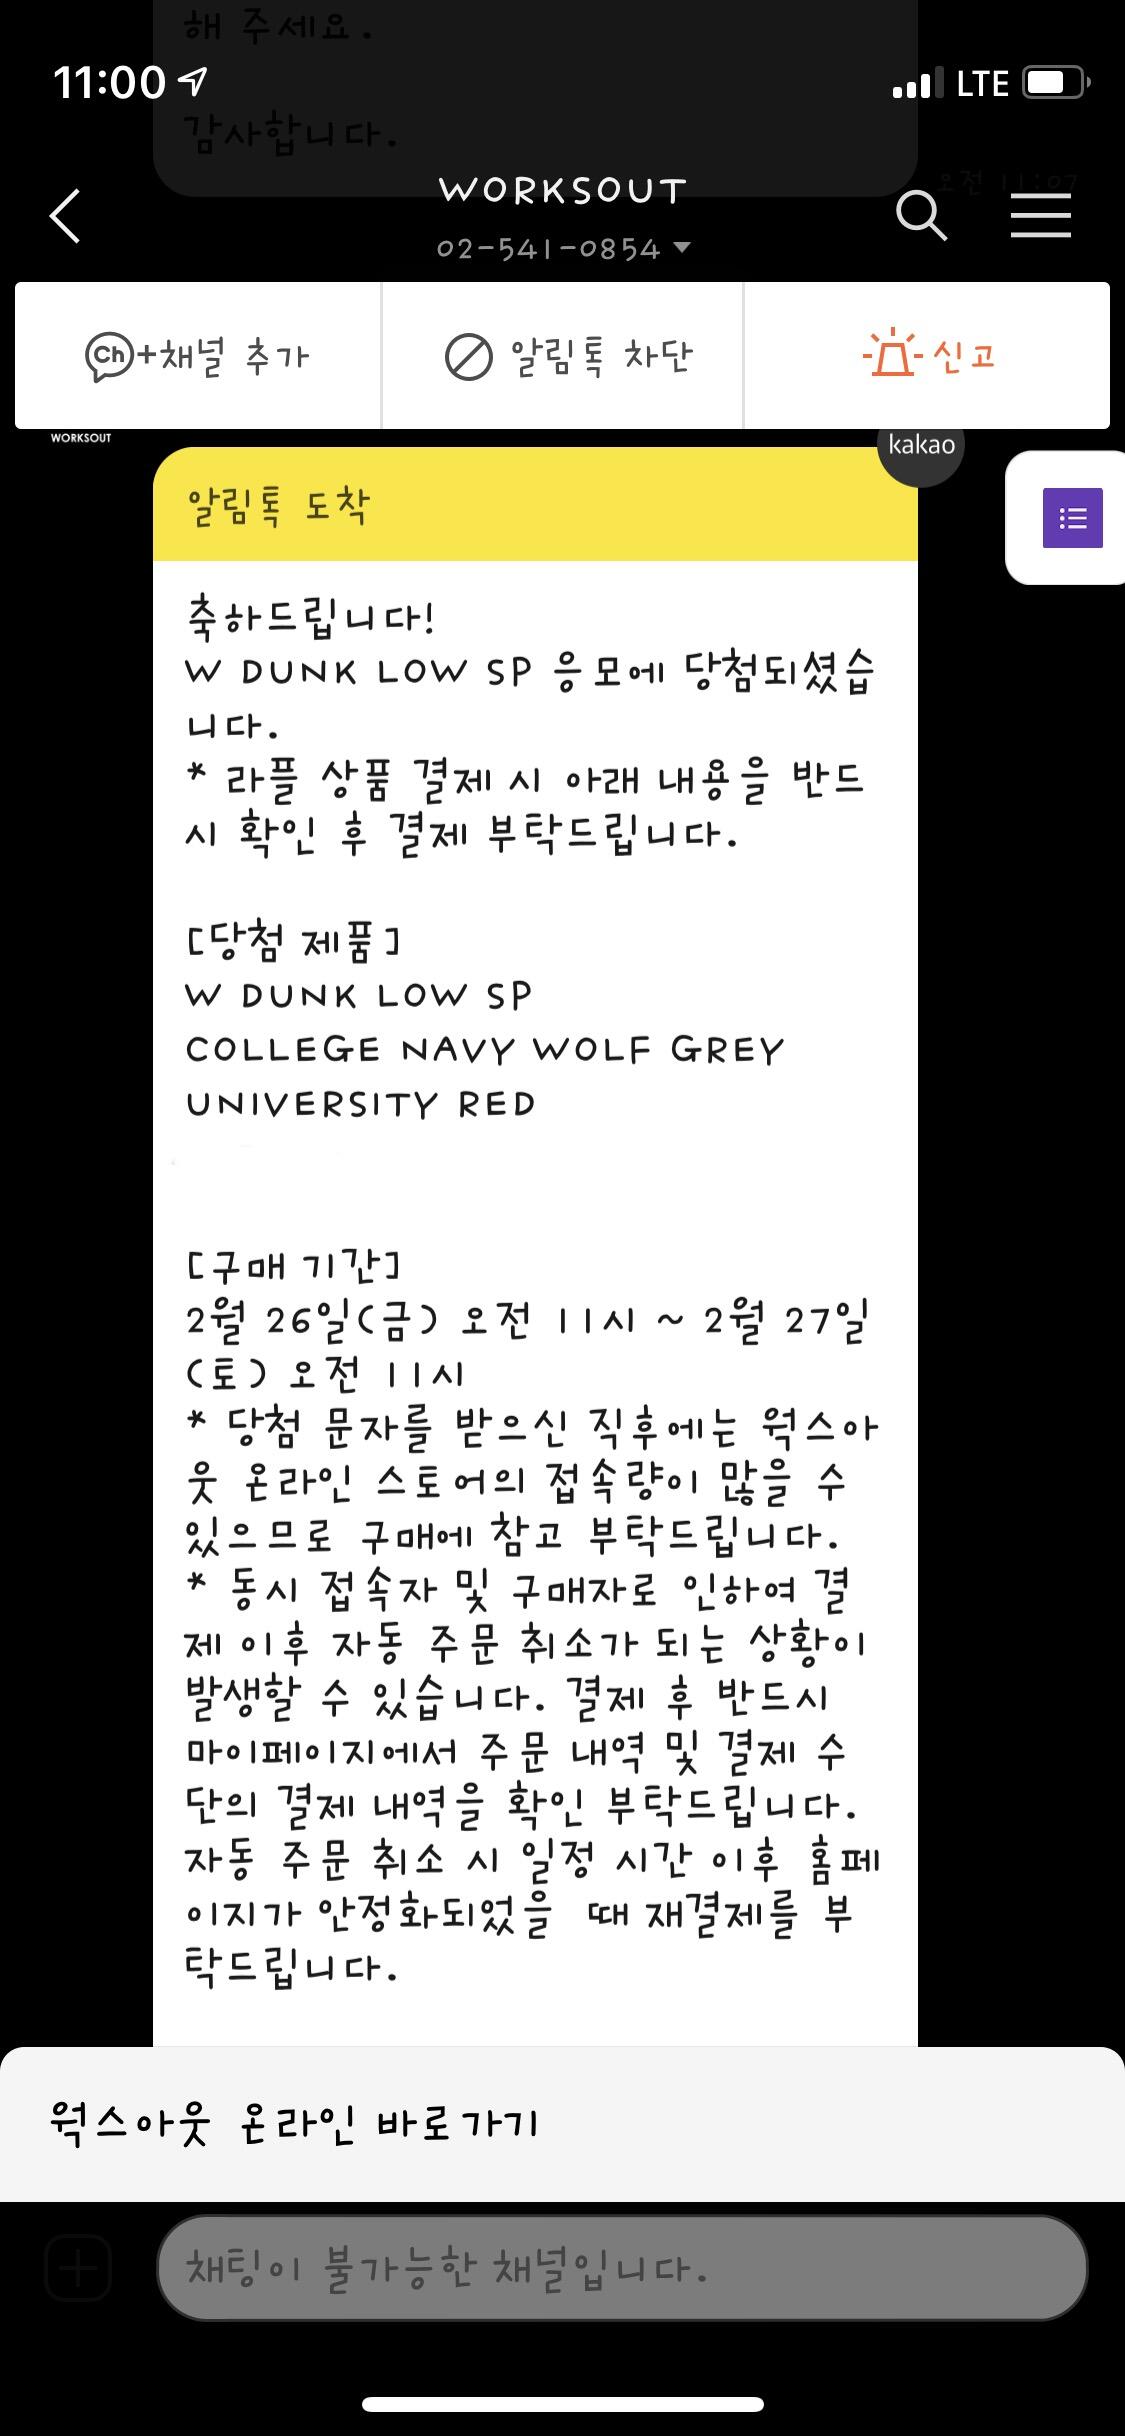 해 주세요.
11:00
LTE
감사합니다.
오전 11:07
WORKSOUT
02-541-0854
Ch+채널 추가
알림톡 차단
신고
WORKSOUT
kakao
알림톡 도착
축하드립니다!
W DUNK LOW SP 응모에 당첨되셨습
니다.
* 라플 상품 결제 시 아래 내용을 반드
시 확인 후 결제 부탁드립니다.
[당첨 제품]
W DUNK LOW SP
COLLEGE NAVY WOLF GREY
UNIVERSITY RED
[구매 기간]
2월 26일(금) 오전 11시 ~ 2월 27일
(토) 오전 11시
* 당첨 문자를 받으신 직후에는 웍스아
웃 온라인 스토어의 접속량이 많을 수
있으므로 구매에 참고 부탁드립니다.
* 동시 접속자 및 구매자로 인하여 결
제 이후 자동 주문 취소가 되는 상황이
발생할 수 있습니다. 결제 후 반드시
마이페이지에서 주문 내역 및 결제 수
단의 결제 내역을 확인 부탁드립니다.
자동 주문 취소 시 일정 시간 이후 홈페
이지가 안정화되었을 때 재결제를 부
탁드립니다.
웍스아웃 온라인 바로가기
채팅이 불가능한 채널입니다.